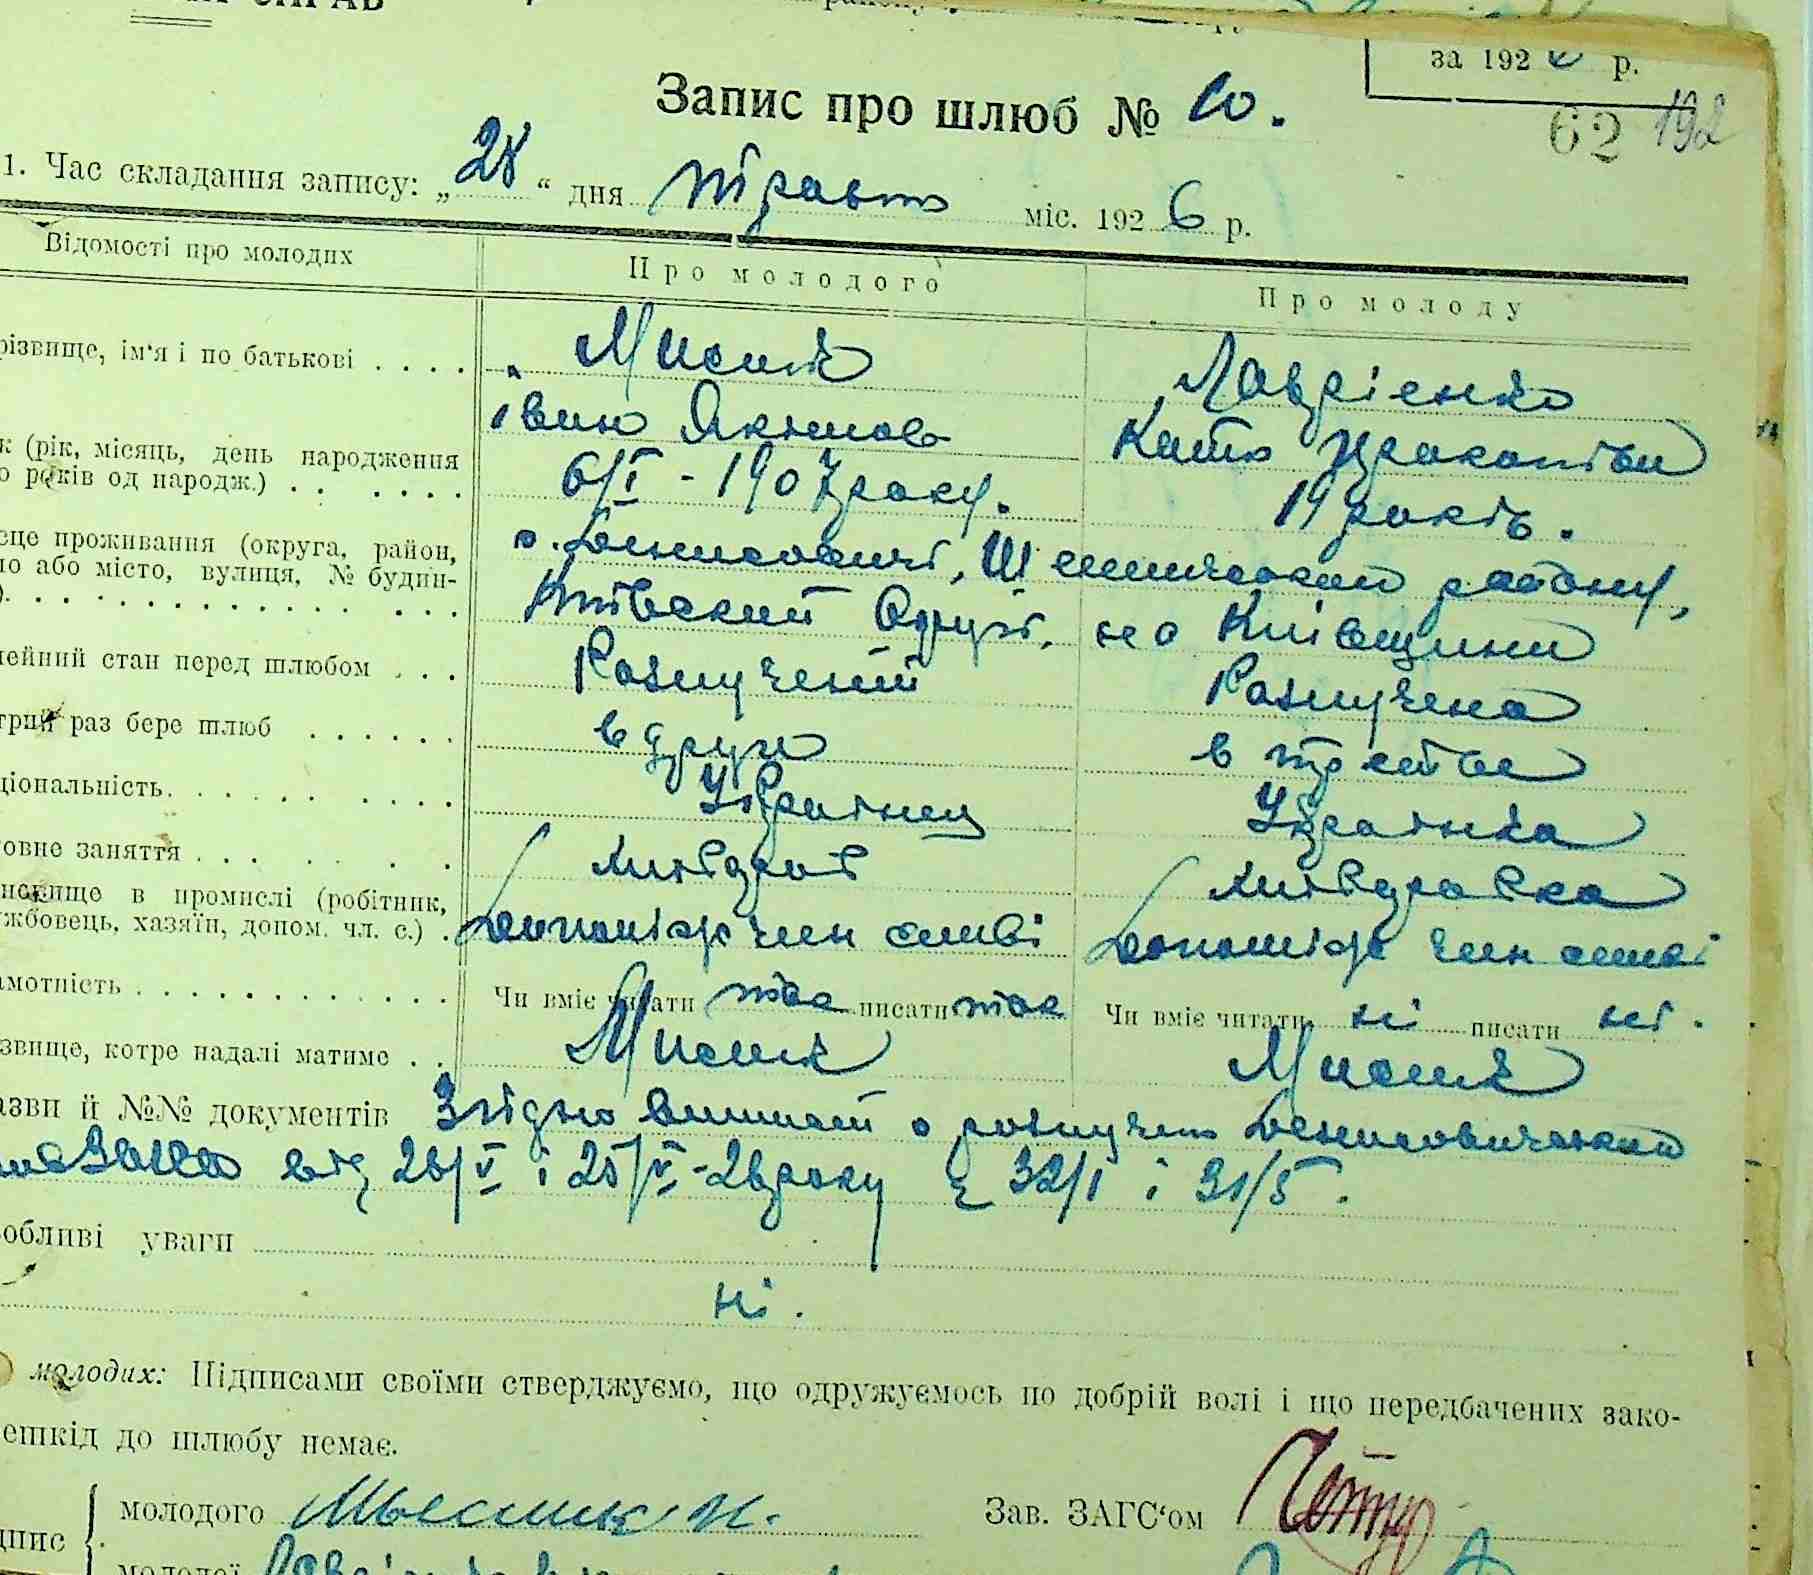 за 1926 р.
Запис про шлюб № 10.
62 192
1. Час складання запису: „28“ дня травня міс. 1926 р.
Відомості про молодих
Про молодого
Про молоду
різвище, ім'я і по батькові
Мисик
Лаврієнко
Іван Якимов
Катя Прокопівни
к (рік, місяць, день народження
о років од народж.)
6/I - 1907 року.
19 років.
сце проживання (округа, район,
ло або місто, вулиця, № будин-
с. Денисовичі, Шепиличського району,
Київський Округі, на Київщини
мейний стан перед шлюбом
Розлучений
Розлучена
трий раз бере шлюб
в друге
в третє
ціональність
Українець
Українка
товне заняття
хлібороб
хліборобка
новище в промислі (робітник,
жбовець, хазяїн, допом. чл. с.)
Допоміж член сімьї
Допоміж член сімьї
амотність
Чи вміє читати так писати так
Чи вміє читати ні писати ні.
звище, котре надалі матиме
Мисик
Мисик
азви й №№ документів Згідно виписки о розлучен Денисовичської
від 26/V і 25/V-26 року № 32/1 і 31/5.
обливі уваги
ні.
молодих: Підписами своїми стверджуємо, що одружуємось по добрій волі і що передбачених зако-
ешкід до шлюбу немає.
дпис
молодого Мысник И.
Зав. ЗАГС'ом
молодої